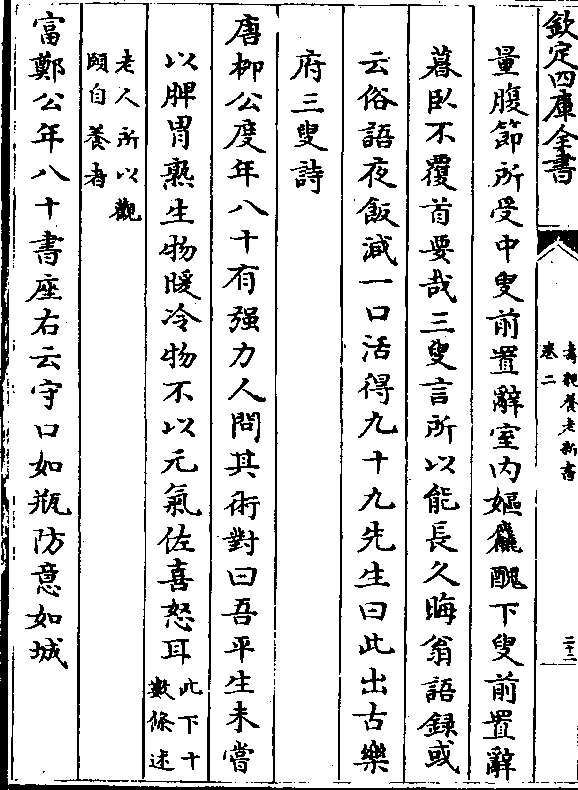 欽定四庫全書
壽親養老新書
卷二
二十二
量腹節所受中叟前置辭室内嫗麤醜下叟前置辭
暮卧不覆首要哉三叟言所以能長久晦翁語録或
云俗語夜飯減一口活得九十九先生曰此出古樂
府三叟詩
唐柳公度年八十有强力人問其術對曰吾平生未嘗
以脾胃熟生物暖冷物不以元氣佐喜怒耳此下十
數條述
老人所以觀
頤自養者
富鄭公年八十書座右云守口如瓶防意如城